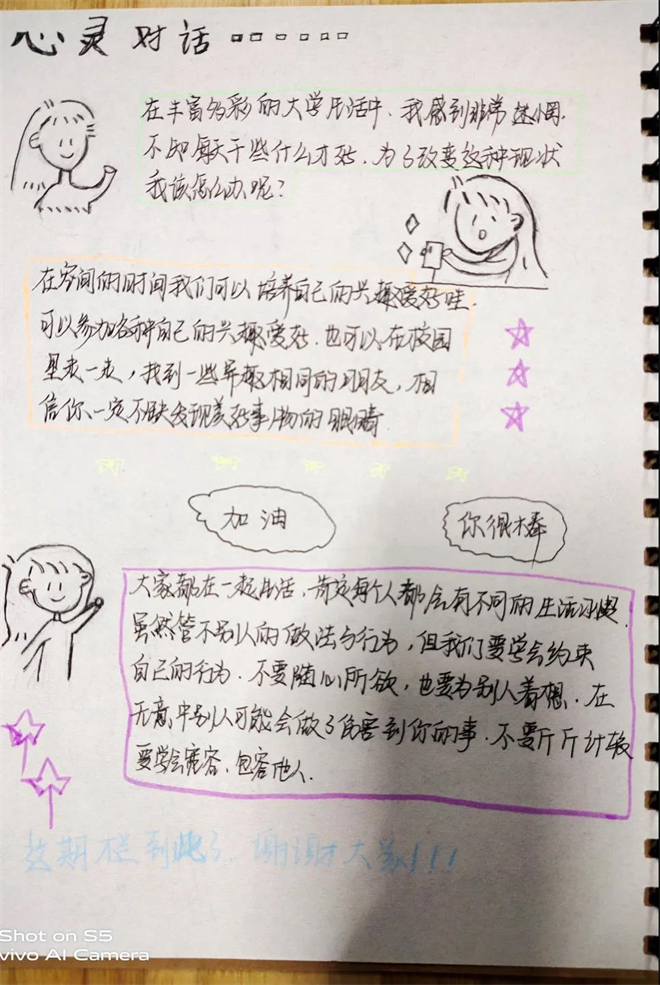 心灵对话……
在丰富多彩的大学生活中,我感到非常迷惘.
不知每天干些什么才好.为了改变这种现状
我该怎么办呢?
在空闲的时间我们可以培养自己的兴趣爱好哇.
可以参加各种自己的兴趣爱好.也可以在校园
里走一走,找到一些异趣相同的朋友,相
信你一定不缺发现美好事物的眼睛.
加油
你很棒
大家都在一起生活,肯定每个人都会有不同的生活习惯.
虽然管不别人的做法与行为,但我们要学会约束
自己的行为.不要随心所欲,也要为别人着想.在
无意中别人可能会做了伤害到你的事.不要斤斤计较
要学会宽容,包容他人.
这期栏到此了.谢谢大家!!!
Shot on S5
vivo AI Camera